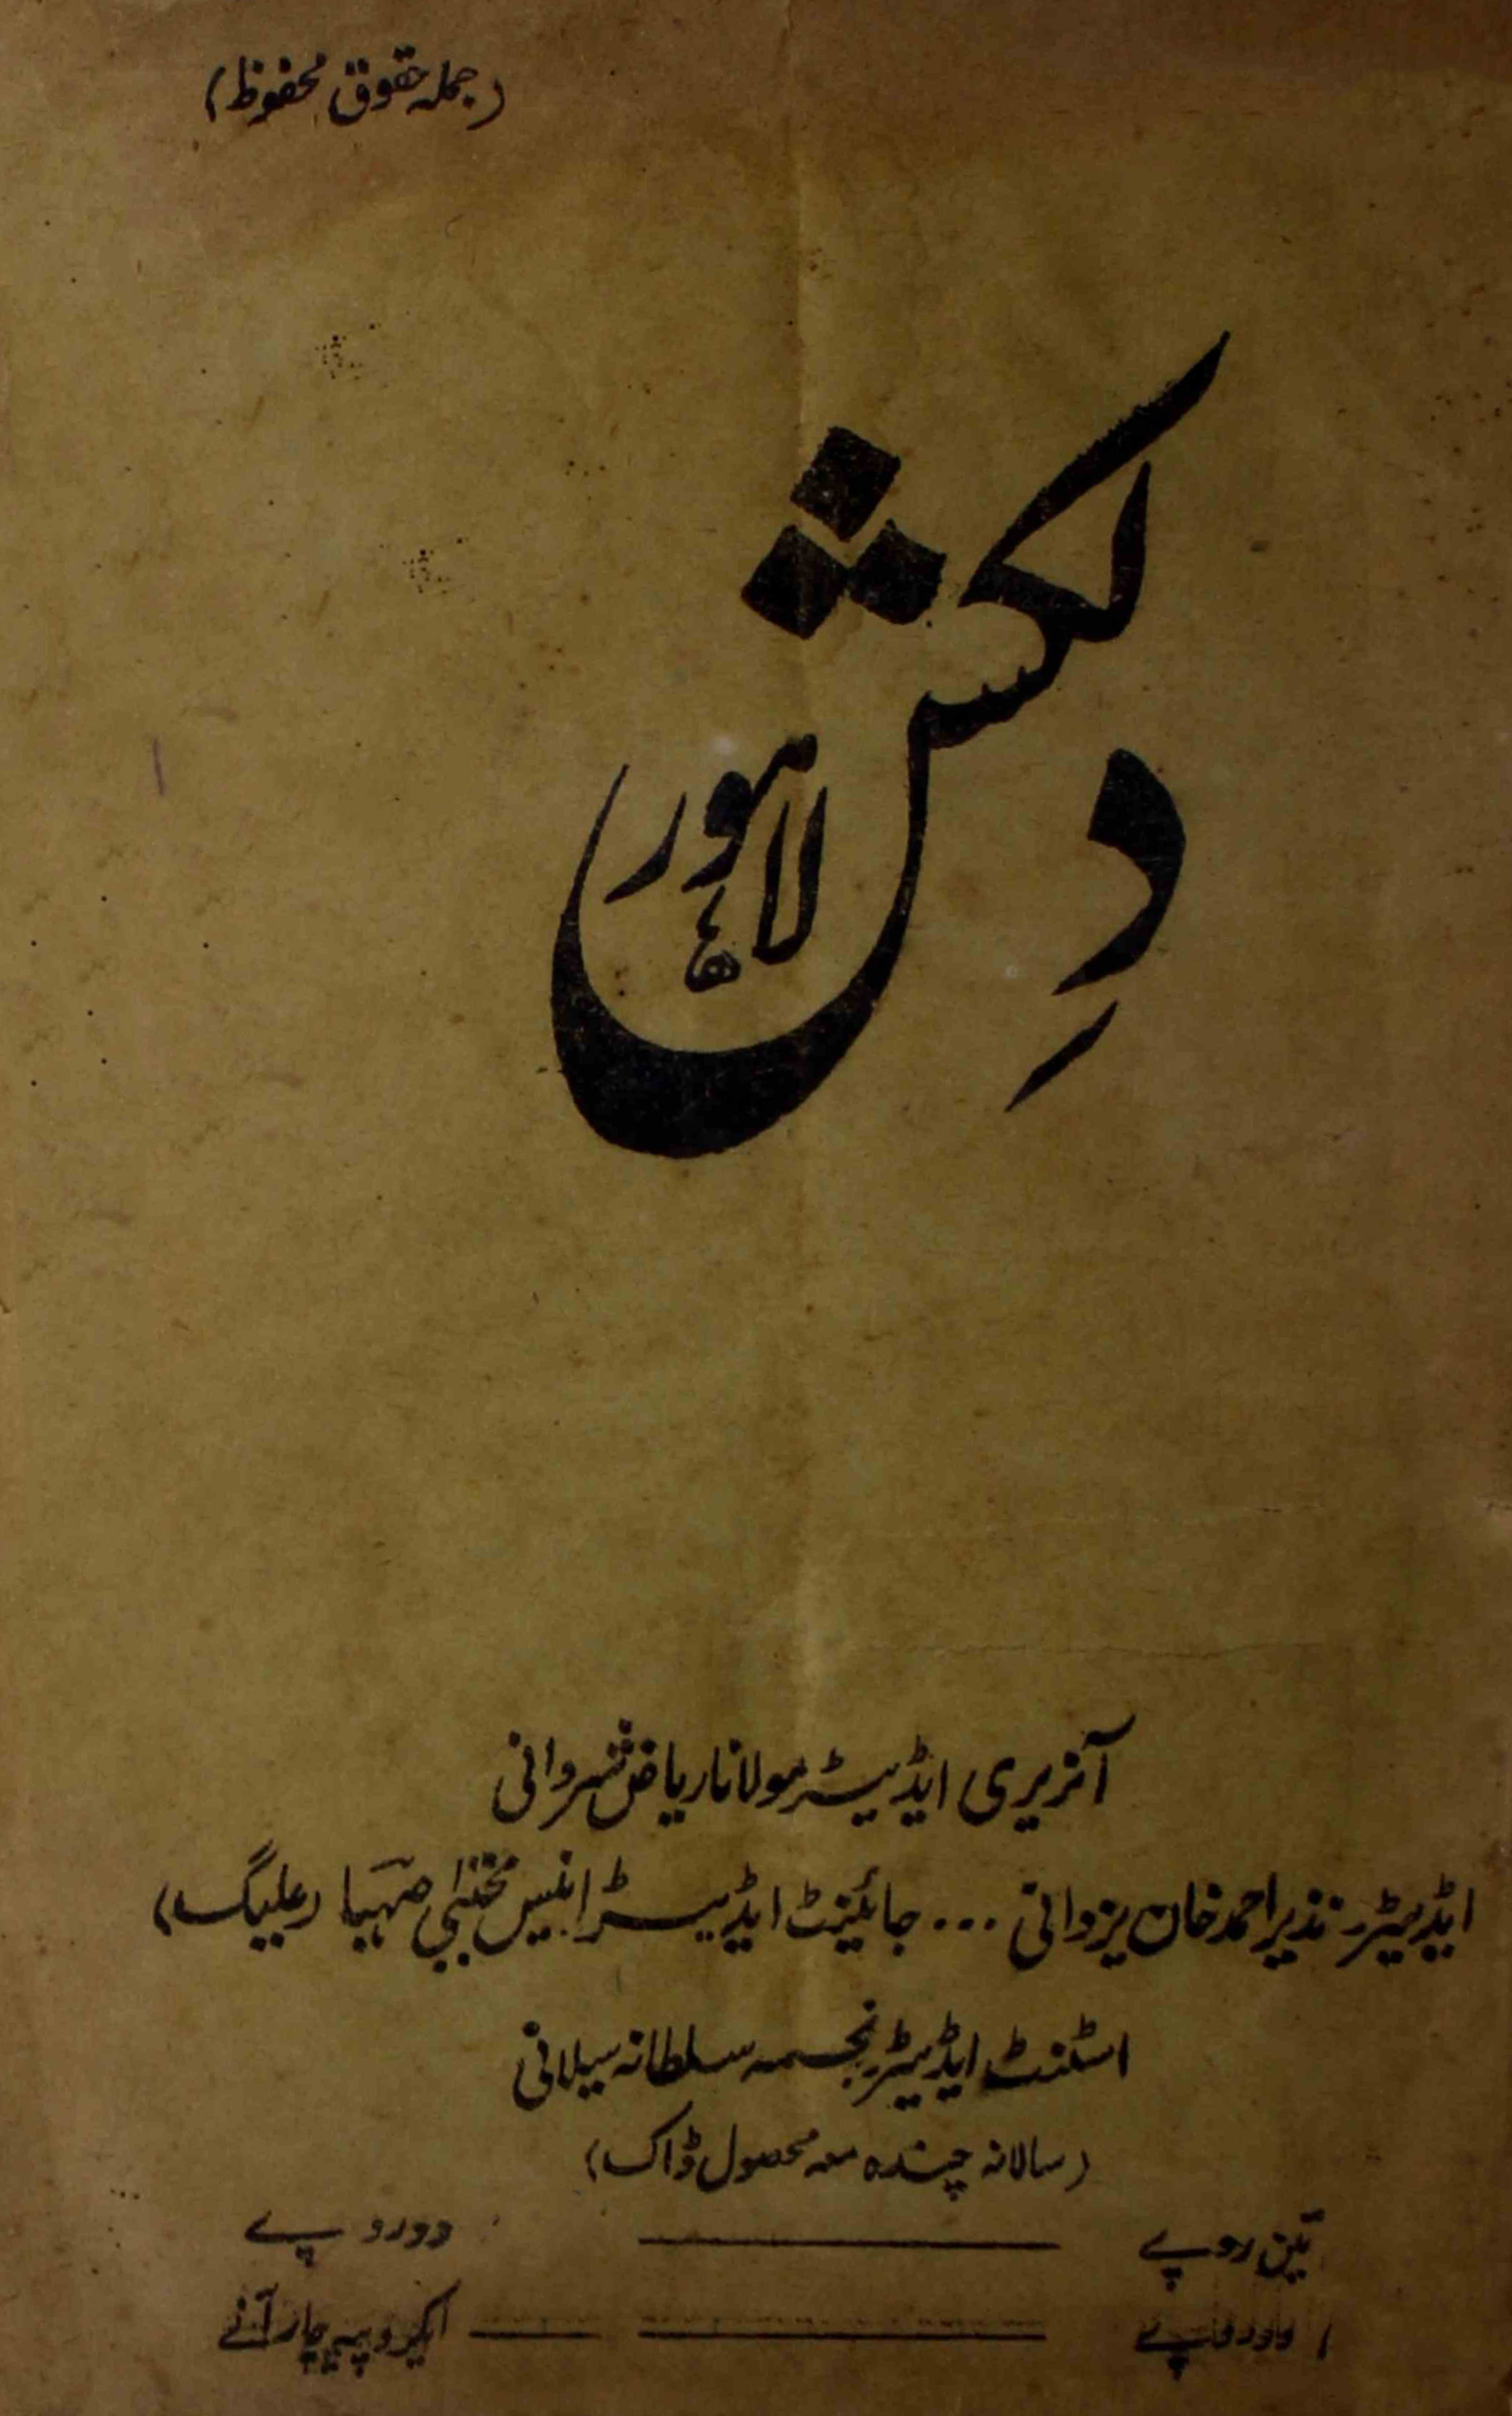 (جملہ حقوق محفوظ)
دِلکش
لاہور
آنریری ایڈیٹر مولانا ریاض شروانی
ایڈیٹر نذیر احمد خان یزدانی ... جائینٹ ایڈیٹر انیس مجتبیٰ صہبا (علیگ)
اسٹنٹ ایڈیٹر نجمہ سلطانہ سیلانی
(سالانہ چندہ معہ محصول ڈاک)
تین روپے ــــــ دو روپے
دو روپے ــــــ ایکروپیہ چار آنے